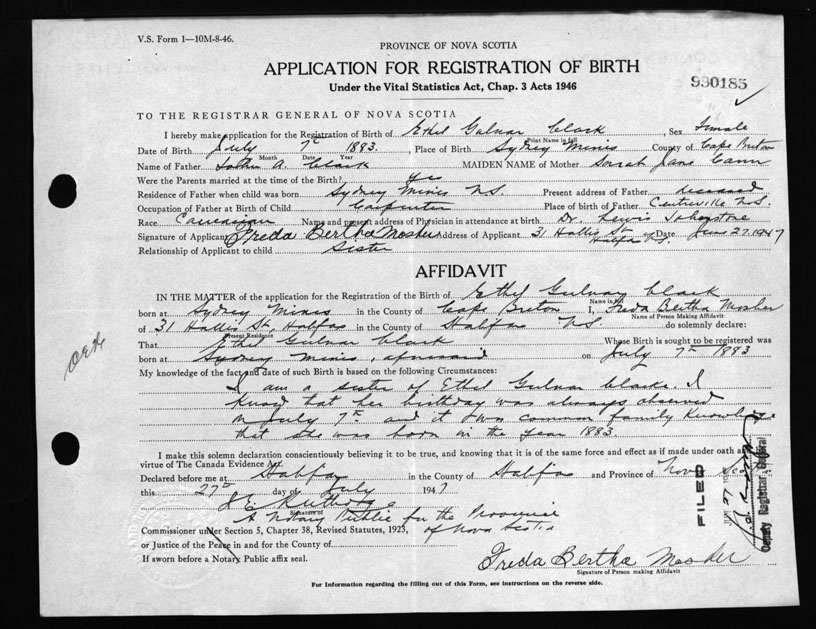 V.S. Form 1—10M-8-46.
PROVINCE OF NOVA SCOTIA
APPLICATION FOR REGISTRATION OF BIRTH
Under the Vital Statistics Act, Chap. 3 Acts 1946
930185
TO THE REGISTRAR GENERAL OF NOVA SCOTIA
I hereby make application for the Registration of Birth of Ethel Gulnar Clark , Sex Female
Print Name in full
Date of Birth July 7th 1883. , Place of Birth Sydney Mines County of Cape Breton
Month Date Year
Name of Father A. Clark MAIDEN NAME of Mother Sarah Jane Cann
Were the Parents married at the time of the Birth? yes
Residence of Father when child was born Sydney Mines N.S. Present address of Father deceased
Occupation of Father at Birth of Child Carpenter Place of birth of Father Centreville N.S.
Race Name and present address of Physician in attendance at birth Dr. Lewis Johnstone
Signature of Applicant Freda Bertha Mosher Address of Applicant 31 Hollis St. Halifax N.S. Date June 27. 1947
Relationship of Applicant to child Sister
AFFIDAVIT
IN THE MATTER of the application for the Registration of the Birth of Ethel Gulnar Clark
Name in full
born at Sydney Mines in the County of Cape Breton I, Freda Bertha Mosher
Name of Person Making Affidavit
of 31 Hollis St, Halifax in the County of Halifax N.S. do solemnly declare:
Present Residence
That Ethel Gulnar Clark Whose Birth is sought to be registered was
born at Sydney Mines, aforesaid on July 7th 1883
My knowledge of the fact and date of such Birth is based on the following Circumstances:
I am a sister of Ethel Gulnar Clark. I
know that her birthday was always observed
on July 7th and it was common family knowledge
that she was born in the year 1883.
I make this solemn declaration conscientiously believing it to be true, and knowing that it is of the same force and effect as if made under oath
virtue of The Canada Evidence Act.
Declared before me at Halifax in the County of Halifax and Province of Nova Scotia
this 27th day of July 1947
Signature of
A Notary Public for the Province
of Nova Scotia
Commissioner under Section 5, Chapter 38, Revised Statutes, 1923,
or Justice of the Peace in and for the County of
If sworn before a Notary Public affix seal.
Freda Bertha Mosher
Signature of Person making Affidavit
For Information regarding the filling out of this Form, see instructions on the reverse side.
FILED
Deputy Registrar General